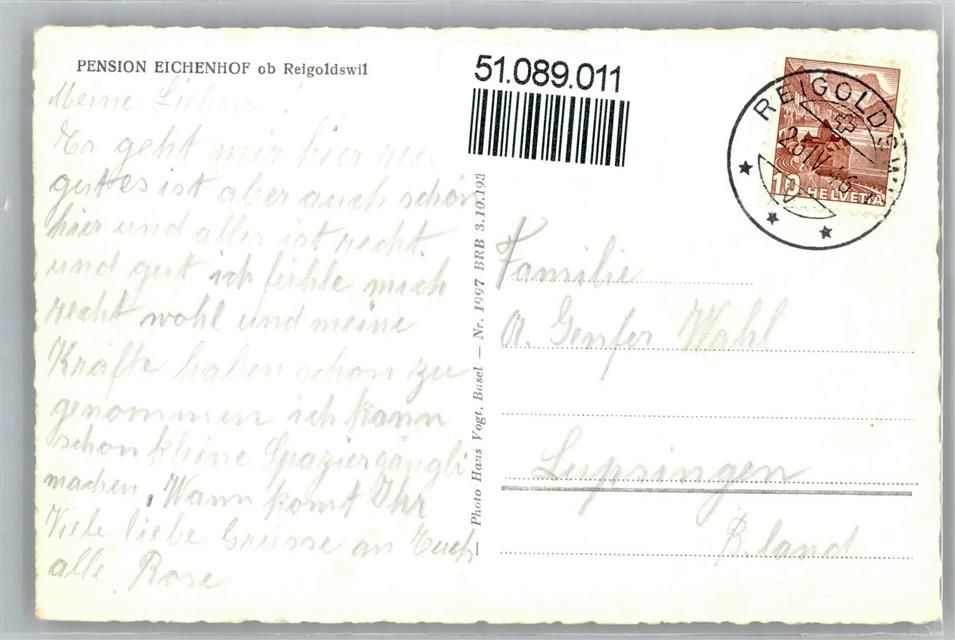 PENSION EICHENHOF ob Reigoldswil
Meine Lieben!
Es geht mir hier
gut es ist aber auch schön
hier und alles ist recht
und gut ich fühle mich
recht wohl und meine
Kräfte haben schon zu
genommen ich kann
schon kleine Spaziergängli
machen, Wann komt Ihr
Viele liebe Grüsse an Euch
alle Rose
Photo Hans Vogt, Basel — Nr. 1997 BRB 3.10.193
51.089.011
REIGOLDSWIL
10 HELVETIA
Familie
A. Genfer Wahl
Lupsingen
B. land